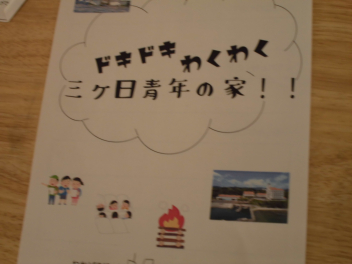 ドキドキわくわく
三ケ日青年の家!!